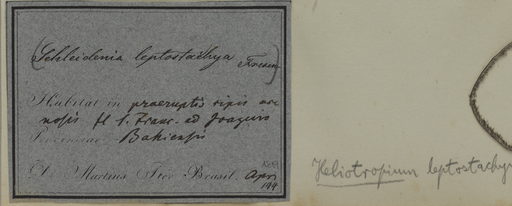 (Schleidenia leptostachya Fresen)
Habitat in praeruptis ripis are-
nosis fl. S. Franc. ad Joazeiro
Provinciae Bahiensis
D. Martius Iter Brasil. Apr.
Heliotropium leptostachy